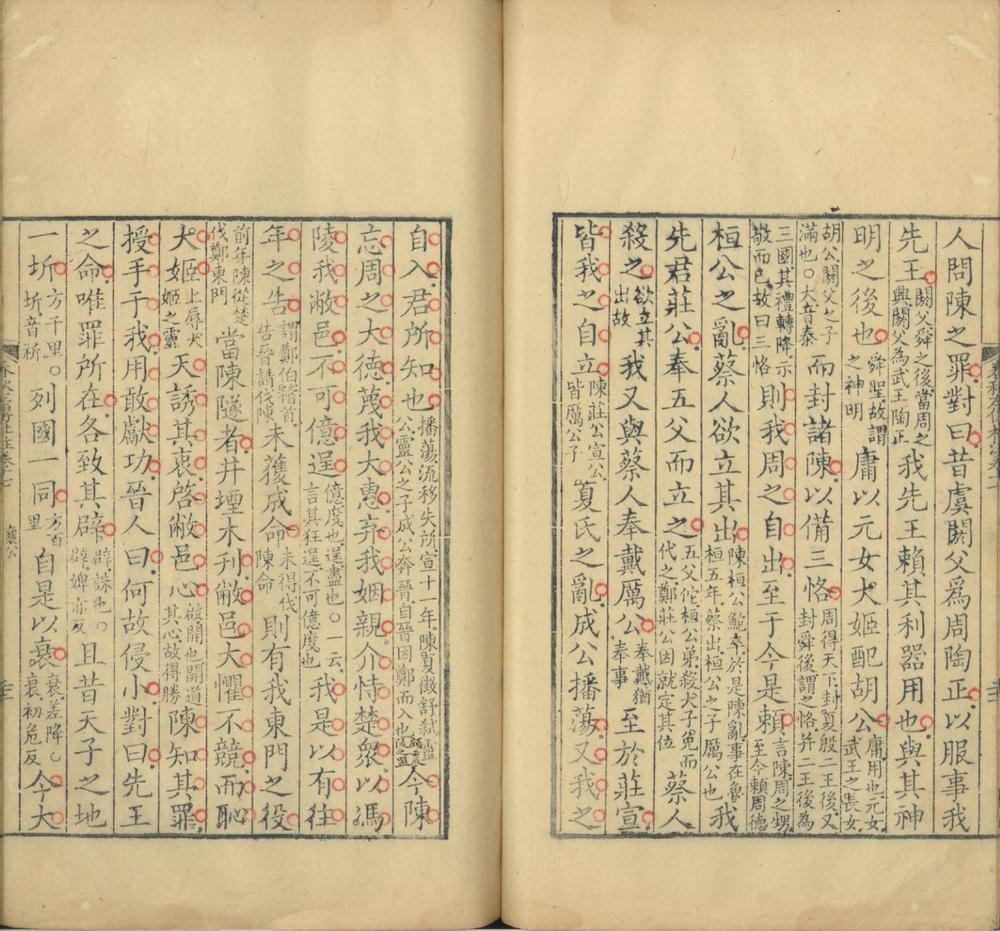 人問陳之罪對曰昔虞閼父為周陶正以服事我
先王閼父舜之後當周之興閼父為武王陶正我先王賴其利器用也與其神
明之後也舜聖故謂之神明庸以元女大姬配胡公庸用也元女武王之長女
胡公閼父之子滿也○大音泰而封諸陳以備三恪周得天下封夏殷二王後又封舜後謂之恪并二王後為
三國其禮轉降示敬而已故曰三恪則我周之自出至于今是賴言陳周之甥至今賴周德
桓公之亂蔡人欲立其出陳桓公鮑卒於是陳亂事在魯桓五年蔡出桓公之子厲公也我
先君莊公奉五父而立之五父佗桓公弟殺大子免而代之鄭莊公因就定其位蔡人
殺之欲立其出故我又與蔡人奉戴厲公奉戴猶奉事至於莊宣
皆我之自立陳莊公宣公皆厲公子夏氏之亂成公播蕩又我之
自入君所知也播蕩流移失所宣十一年陳夏徵舒弒靈公靈公之子成公奔晉自晉因鄭而入也今陳
忘周之大德蔑我大惠弃我姻親介恃楚衆以馮
陵我敝邑不可億逞億度也逞盡也○一云言其狂逞不可億度也我是以有往
年之告謂鄭伯稽首告晉請伐陳未獲成命未得伐陳命則有我東門之役
前年陳從楚伐鄭東門當陳隧者井堙木刋敝邑大懼不競而恥
大姬上辱大姬之靈天誘其衷啓敝邑心啟開也開道其心故得勝陳知其罪
授手于我用敢獻功晉人曰何故侵小對曰先王
之命唯罪所在各致其辟辟誅也○辟婢亦反且昔天子之地
一圻方千里○圻音祈列國一同方百里自是以衰衰差降○衰初危反今大